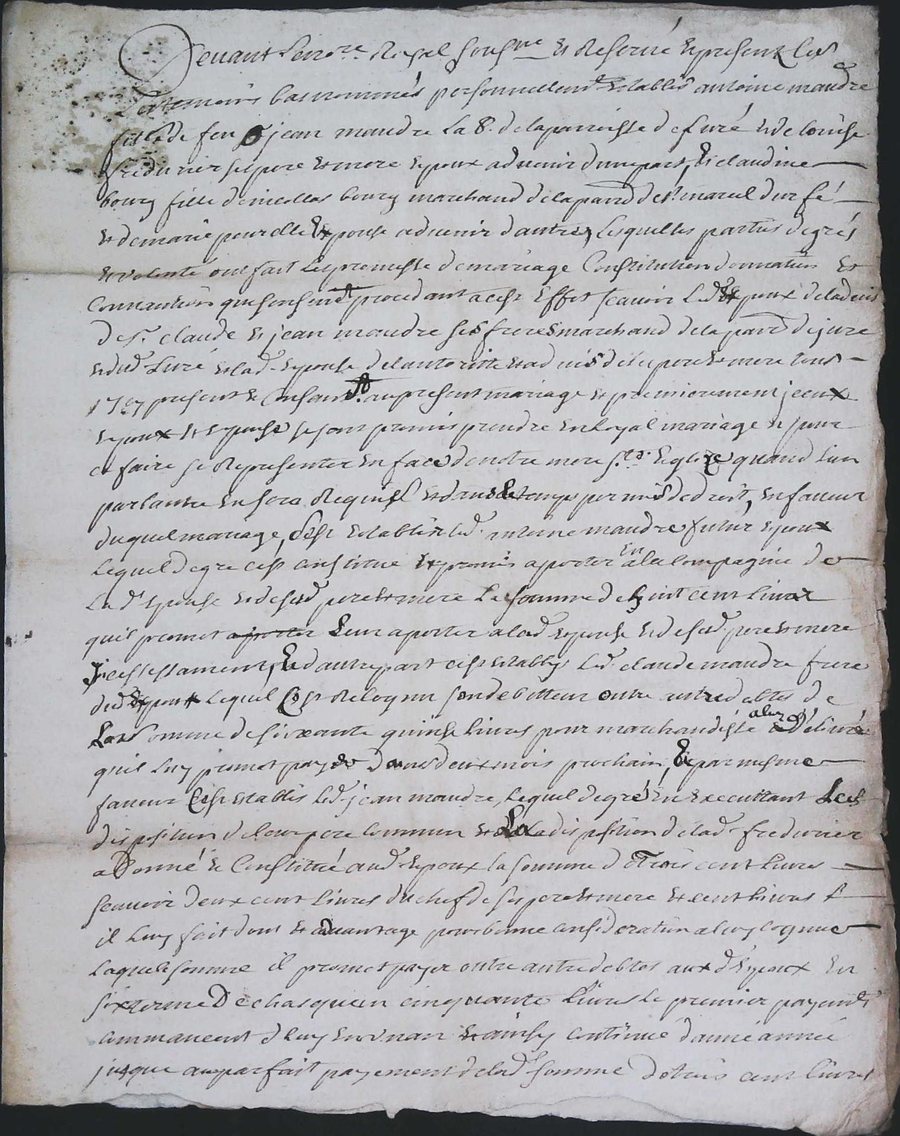 Devant le no.re Royal sousne et Reservé et presens les
tesmoins bas nommés personnellemt establis antoine maudre
fils de feu jean maudre La B. de la parroisse de Luré et de loüise
fredurier ses pere et mere epoux advenir d'une part, Et claudine
bourg fille de nicollas bourg marchand de la parr de st marcel d'urfé
et de marie pour elle Espouse advenir d'autre, Lesquelles parties de grés
et volonté ont fait les promesse de mariage Constitution donnation Et
Conventions que sensuivt procedant a cest Effet scavoir led Epoux de ladvis
de sr. claude et jean maudre ses freres marchand de la parr de jure
et dud Luré et lad. Epouse de l'autorité et advis de ses pere et mere tous
jcy present et Consent au present mariage et premierement jceux
epoux et Epouse se sont promis prendre en Loyal mariage et pour
ce faire se Representer en face de nostre mere ste Eglize quand l'un
par l'autre en sera Requis et dans le temps permis de droit, en faveur
duquel mariage, s'est establis led antoine maudre futur epoux
Lequel de gre cest constitué et promis aporter En a la compagnie de
La d. Epouse et de sesd pere et mere La somme de huit cent livres
quil promet aporter Leur aporter a lad epouse et de sesd. pere et mere
d'autre part cest establis Led. claude maudre frere
dud Epoux Lequel s'est Reconnu son debitteur outre autre debtes de
La Somme de soixante quinse livres pour marchandisse a luy delivré
quil luy promet payer dans deux mois prochain, Et par mesme
faveur s'est establis Led. jean maudre, Lequel de gré En executtant Les
disposition de leur pere commun et La disposition de lad. fredurier
a Donné et Constitué aud. epoux la somme de Trois cent livres
scavoir deux cent livres du chef de ses pere et mere et cent livres
il Luy fait dont et advantage pour bonne consideration a luy cognue
Laquele somme il promet payer outre autre debtes aux d. Epoux En
six terme De chasqu'un cinquante Livres le premier payemt
commancent d'huy en un an et ainsy continué d'année année
jusque au parfait payement de lad. somme de trois cent livres